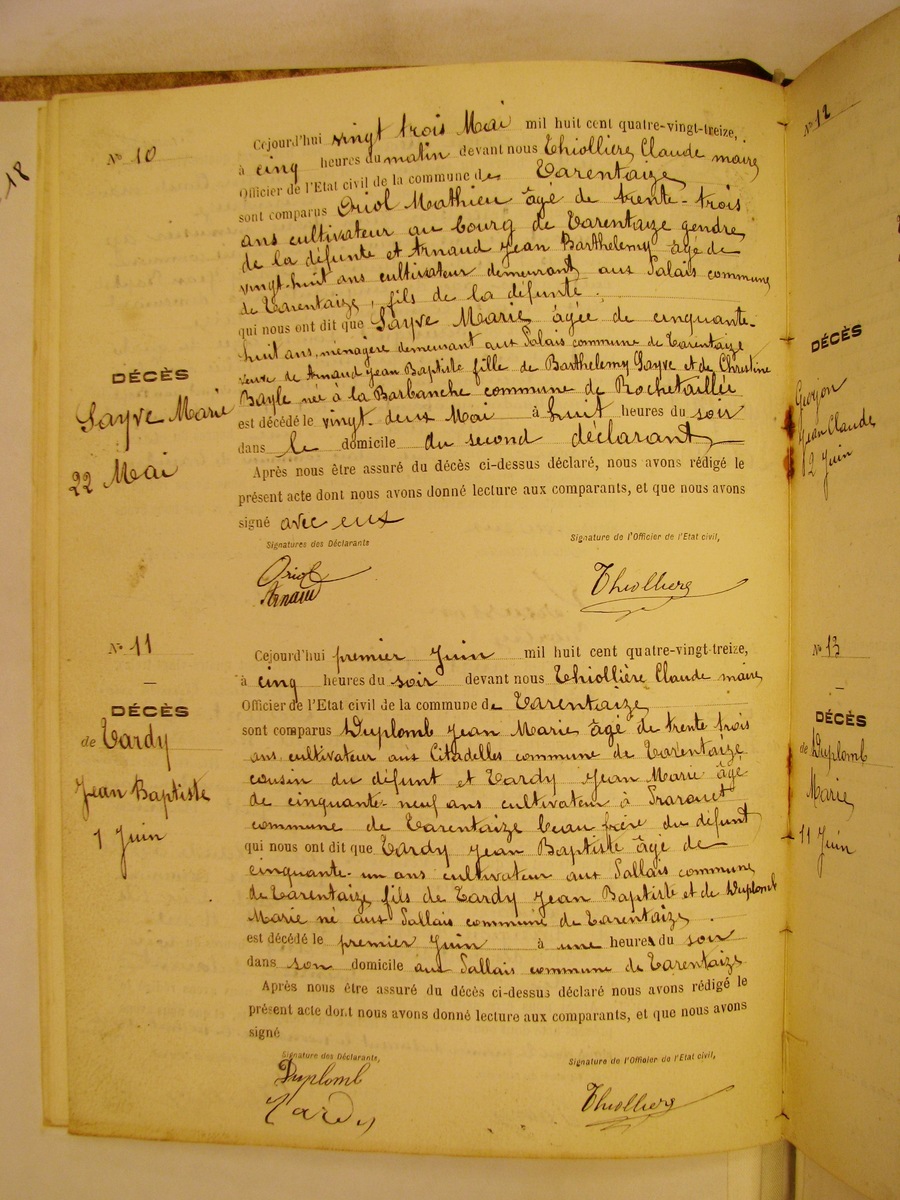 18
N° 10
DÉCÈS
Sayve Marie
22 Mai
Cejourd'hui vingt trois Mai mil huit cent quatre-vingt-treize,
à cinq heures du matin devant nous Thiollière Claude maire
Officier de l'Etat civil de la commune de Tarentaize
sont comparus Oriol Mathieu âgé de trente-trois
ans cultivateur au bourg de Tarentaize gendre
de la défunte et Arnaud Jean Barthelemy âgé de
vingt-huit ans cultivateur demeurant aux Palais commune
de Tarentaize, fils de la défunte.
qui nous ont dit que Sayve Marie âgée de cinquante-
huit ans, ménagère demeurant aux Palais commune de Tarentaize
veuve de Arnaud Jean Baptiste fille de Barthelemy Sayve et de Christine
Bayle née à la Barbanche commune de Rochetaillée
est décédé le vingt-deux Mai à huit heures du soir
dans le domicile du second déclarant
Après nous être assuré du décès ci-dessus déclaré, nous avons rédigé le
présent acte dont nous avons donné lecture aux comparants, et que nous avons
signé avec eux
Signatures des Déclarants
Signature de l'Officier de l'Etat civil,
Oriol
Arnaud
Thiolliere
N° 11
DÉCÈS
de Tardy
Jean Baptiste
1 Juin
Cejourd'hui premier Juin mil huit cent quatre-vingt-treize,
à cinq heures du soir devant nous Thiollière Claude maire
Officier de l'Etat civil de la commune de Tarentaize
sont comparus Duplomb Jean Marie âgé de trente trois
ans cultivateur aux Citadelles commune de Tarentaize
cousin du défunt et Tardy Jean Marie âgé
de cinquante-neuf ans cultivateur à
commune de Tarentaize beau frère du défunt
qui nous ont dit que Tardy Jean Baptiste âgé de
cinquante-un ans cultivateur aux Sallais commune
de Tarentaize fils de Tardy Jean Baptiste et de Duplomb
Marie né aux Sallais commune de Tarentaize.
est décédé le premier Juin à une heures du soir
dans son domicile aux Sallais commune de Tarentaize
Après nous être assuré du décès ci-dessus déclaré nous avons rédigé le
présent acte dont nous avons donné lecture aux comparants, et que nous avons
signé
Signature des Déclarants,
Signature de l'Officier de l'Etat civil,
Duplomb
Tardy
Thiolliere
N° 12
DÉCÈS
Jean Claude
2 Juin
N° 13
DÉCÈS
de Duplomb
Marie
11 Juin